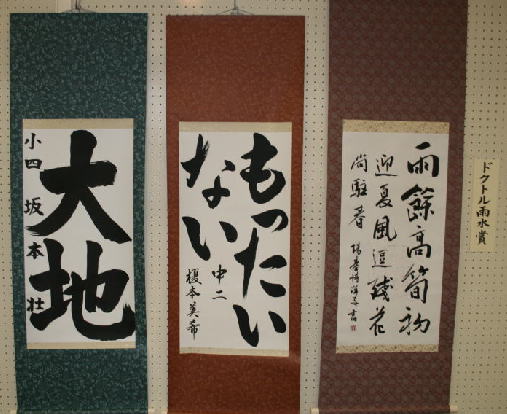 ドクトル雨水賞
雨餘高筍初
迎夏風逗残花
尚駐春
もったい
ない
中二
榎本美希
大地
小四 坂本 壮